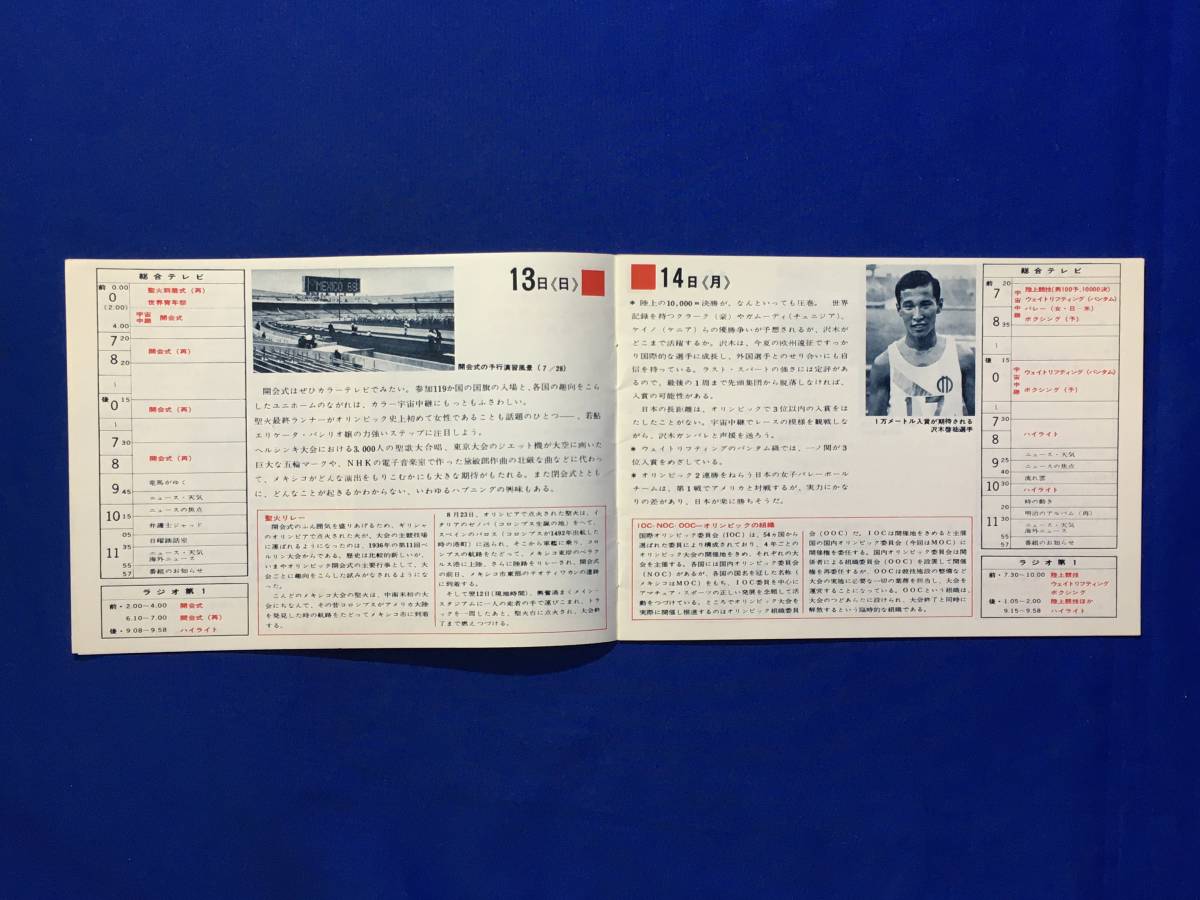 総合テレビ
前 0.00 聖火到着式(再)
0 世界青年祭
(2.00)
宇宙中継 開会式
4.00
7 20 開会式(再)
8 20
後 0 15 開会式(再)
7 30
8 開会式(再)
9 竜馬がゆく
45 ニュース・天気
10 ニュースの焦点
15 弁護士ジャッド
05 日曜雑話室
11 35 ニュース・天気
海外ニュース
55
57 番組のお知らせ
ラジオ第1
前・2.00−4.00 開会式
6.10−7.00 開会式(再)
後・9.08−9.58 ハイライト
MEXICO 68
開会式の予行演習風景(7/28)
13日《日》
開会式はぜひカラーテレビでみたい。参加119か国の国旗の入場と、各国の趣向をこら
したユニホームのながれは、カラー宇宙中継にもっともふさわしい。
聖火最終ランナーがオリンピック史上初めて女性であることも話題のひとつ──、若鮎
エリケータ・バシリオ嬢の力強いステップに注目しよう。
ヘルシンキ大会における3,000人の聖歌大合唱、東京大会のジェット機が大空に画いた
巨大な五輪マークや、NHKの電子音楽室で作った黛敏郎作曲の壮厳な曲などに代わっ
て、メキシコがどんな演出をもりこむかにも大きな期待がもたれる。また閉会式ととも
に、どんなことが起きるかわからない、いわゆるハプニングの興味もある。
聖火リレー
開会式のふん囲気を盛りあげるため、ギリシャ
のオリンピアで点火された火が、大会の主競技場
に運ばれるようになったのは、1936年の第11回ベ
ルリン大会からである。歴史は比較的新しいが、
いまやオリンピック開会式の主要行事として、大
会ごとに趣向をこらした試みがなされるようにな
った。
こんどのメキシコ大会の聖火は、中南米初の大
会にちなんで、その昔コロンブスがアメリカ大陸
を発見した時の航路をたどってメキシコ市に到着
する。
8月23日、オリンピアで点火された聖火は、イ
タリアのゼノバ(コロンブス生誕の地)をへて、
スペインのパロス(コロンブスが1492年出航した
時の港町)に送られ、そこから軍艦に乗り、コロ
ンブスの航路をたどって、メキシコ東岸のベラク
ルス港に上陸。さらに陸路をリレーされ、開会式
の前日、メキシコ市東部のテオティワカンの遺跡
に到着する。
そして翌12日(現地時間)、興奮渦まくメイン・
スタジアムに一人の走者の手で運びこまれ、トラ
ックを一周したあと、聖火台に点火され、大会終
了まで燃えつづける。
14日《月》
* 陸上の10,000m決勝が、なんといっても圧巻。世界
記録を持つクラーク(豪)やガムーディ(チュニジア)、
ケイノ(ケニア)らの優勝争いが予想されるが、沢木が
どこまで活躍するか。沢木は、今夏の欧州遠征ですっか
り国際的な選手に成長し、外国選手とのせり合いにも自
信を持っている。ラスト・スパートの強さには定評があ
るので、最後の1周まで先頭集団から脱落しなければ、
入賞の可能性がある。
日本の長距離は、オリンピックで3位以内の入賞をは
たしたことがない。宇宙中継でレースの模様を観戦しな
がら、沢木ガンバレと声援を送ろう。
* ウェイトリフティングのバンタム級では、一ノ関が3
位入賞をめざしている。
* オリンピック2連勝をねらう日本の女子バレーボール
チームは、第1戦でアメリカと対戦するが、実力にかな
りの差があり、日本が楽に勝ちそうだ。
17
1万メートル入賞が期待される
沢木啓祐選手
IOC・NOC・OOC──オリンピックの組織
国際オリンピック委員会(IOC)は、54ヵ国から
選ばれた委員により構成されており、4年ごとの
オリンピック大会の開催地をきめ、それぞれの大
会を主催する。各国には国内オリンピック委員会
(NOC)があるが、各国の国名を冠した名称(
メキシコはMOC)をもち、IOC委員を中心に
アマチュア・スポーツの正しい発展を念願して活
動をつづけている。ところでオリンピック大会を
実際に開催し推進するのはオリンピック組織委員
会(OOC)だ。IOCは開催地をきめると主催
国の国内オリンピック委員会(今回はMOC)に
開催権を委任する。国内オリンピック委員会は関
係者による組織委員会(OOC)を設置して開催
権を再委任するが、OOCは競技施設の整備など
大会の実施に必要な一切の業務を担当し、大会を
運営することになっている。OOCという組織は、
大会のつどあらたに設けられ、大会終了と同時に
解散するという臨時的な組織である。
総合テレビ
前 7 20 陸上競技(男100予、10000決)
宇宙中継 ウェイトリフティング(バンタム)
バレー(女・日−米)
8 35 ボクシング(予)
後 0 15
宇宙中継 ウェイトリフティング(バンタム)
ボクシング(予)
7 30
8 ハイライト
9 25 ニュース・天気
ニュースの焦点
40 流れ雲
10 30 ハイライト
時の動き
20 明治のアルバム(再)
11 50 ニュース・天気
海外ニュース
55
57 番組のお知らせ
ラジオ第1
前・7.30−10.00 陸上競技
ウェイトリフティング
ボクシング
後・1.05−2.00 陸上競技ほか
9.15−9.58 ハイライト